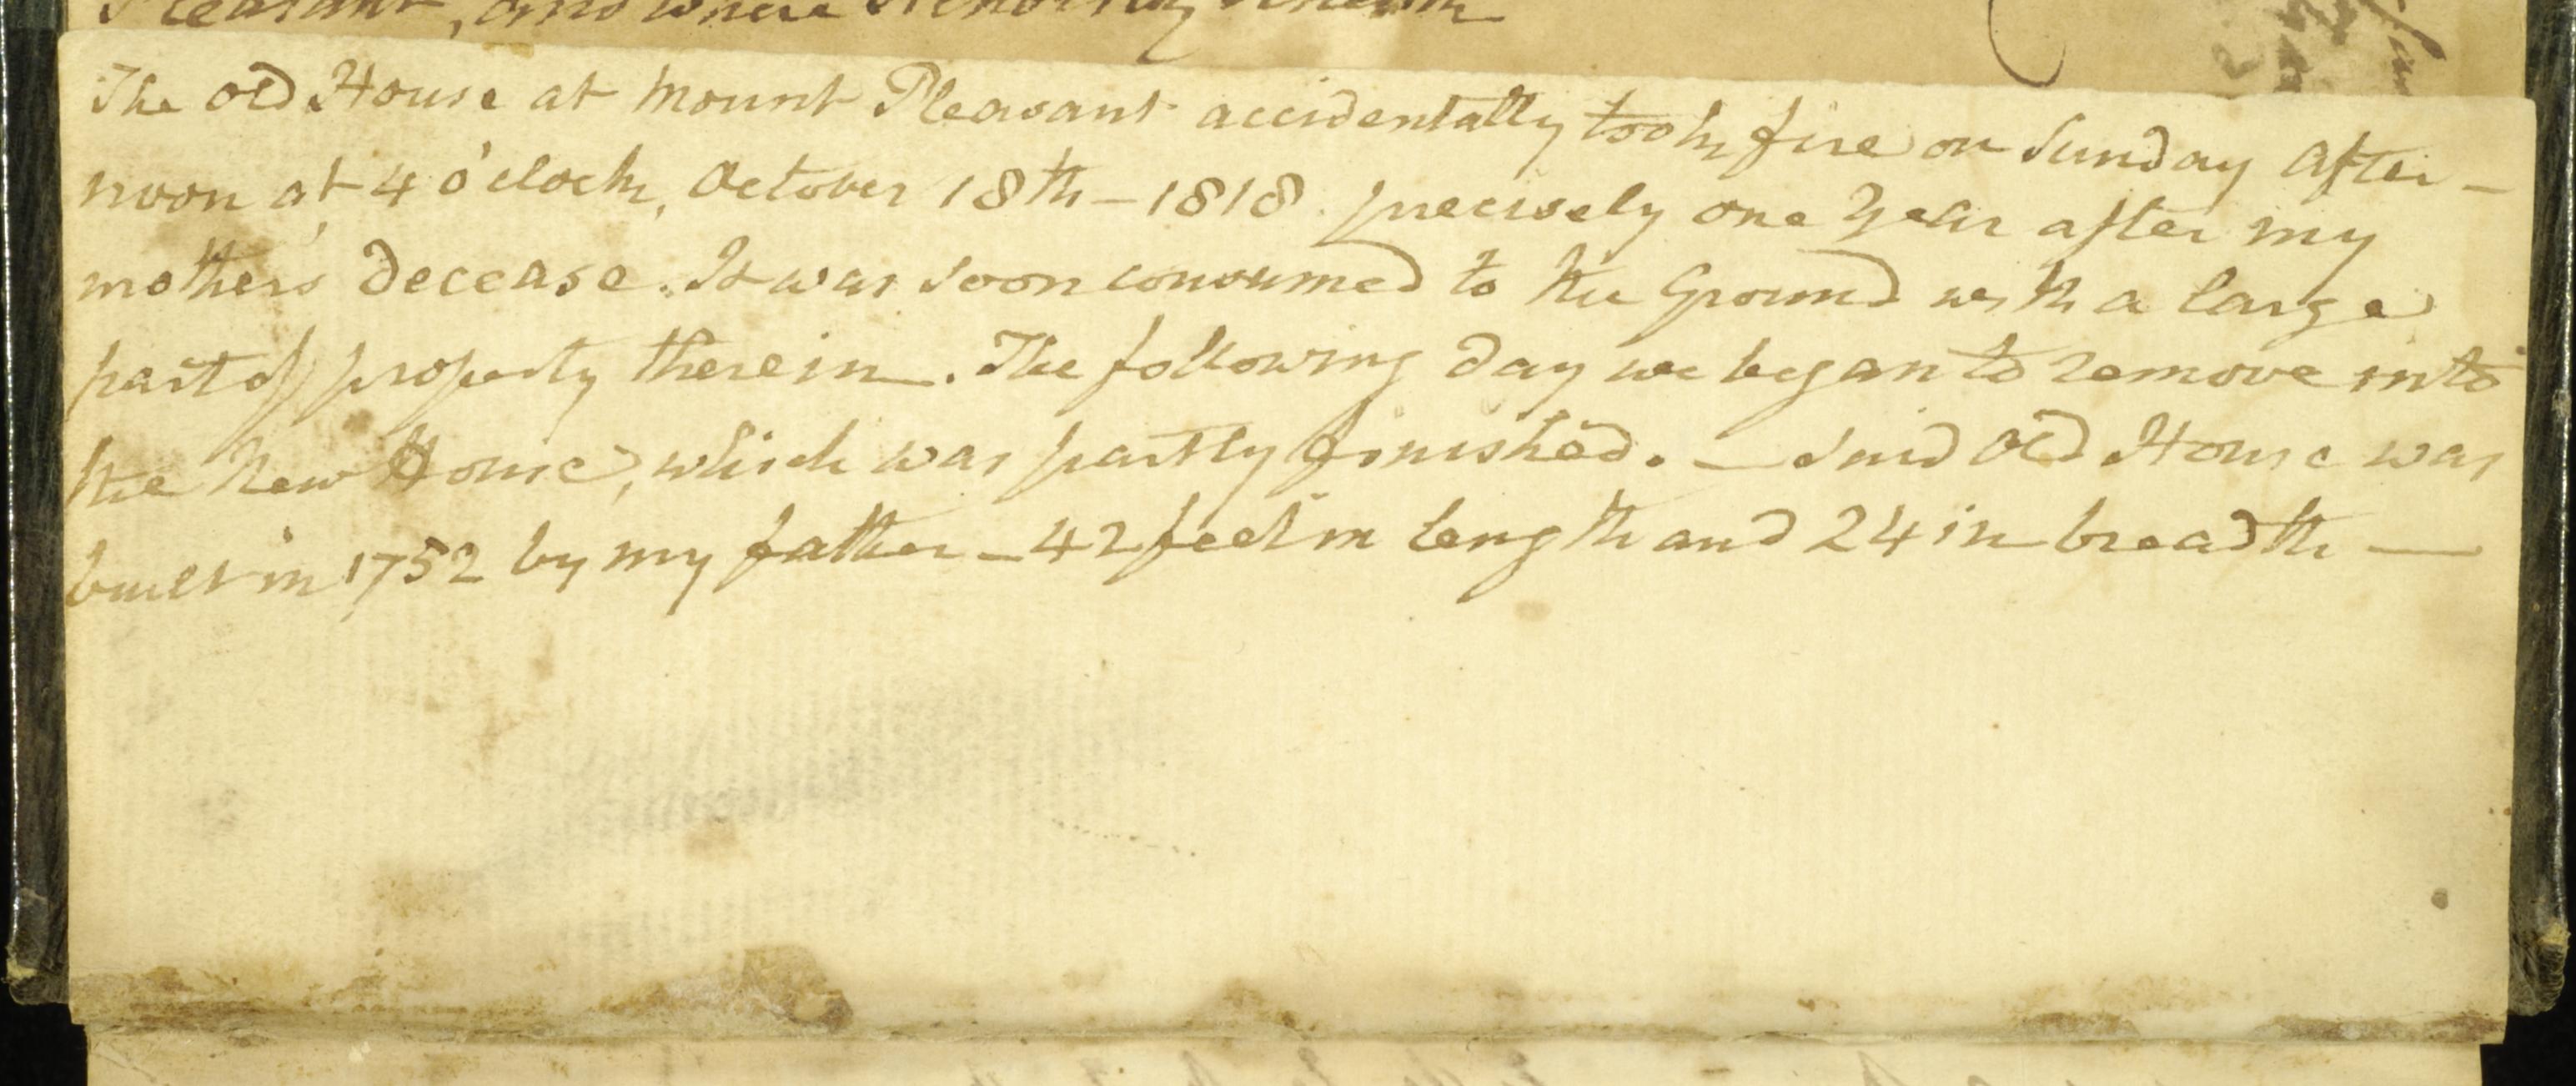 Pleasant, and where
The old House at Mount Pleasant accidentally took fire on Sunday After-
noon at 4 o'clock, October 18th - 1818. precisely one Year after my
mothers decease. It was soon consumed to the Ground with a large
part of property therein. The following day we began to remove into
the New House, which was partly finished. - Said old House was
built in 1752 by my father - 42 feet in length and 24 in breadth -